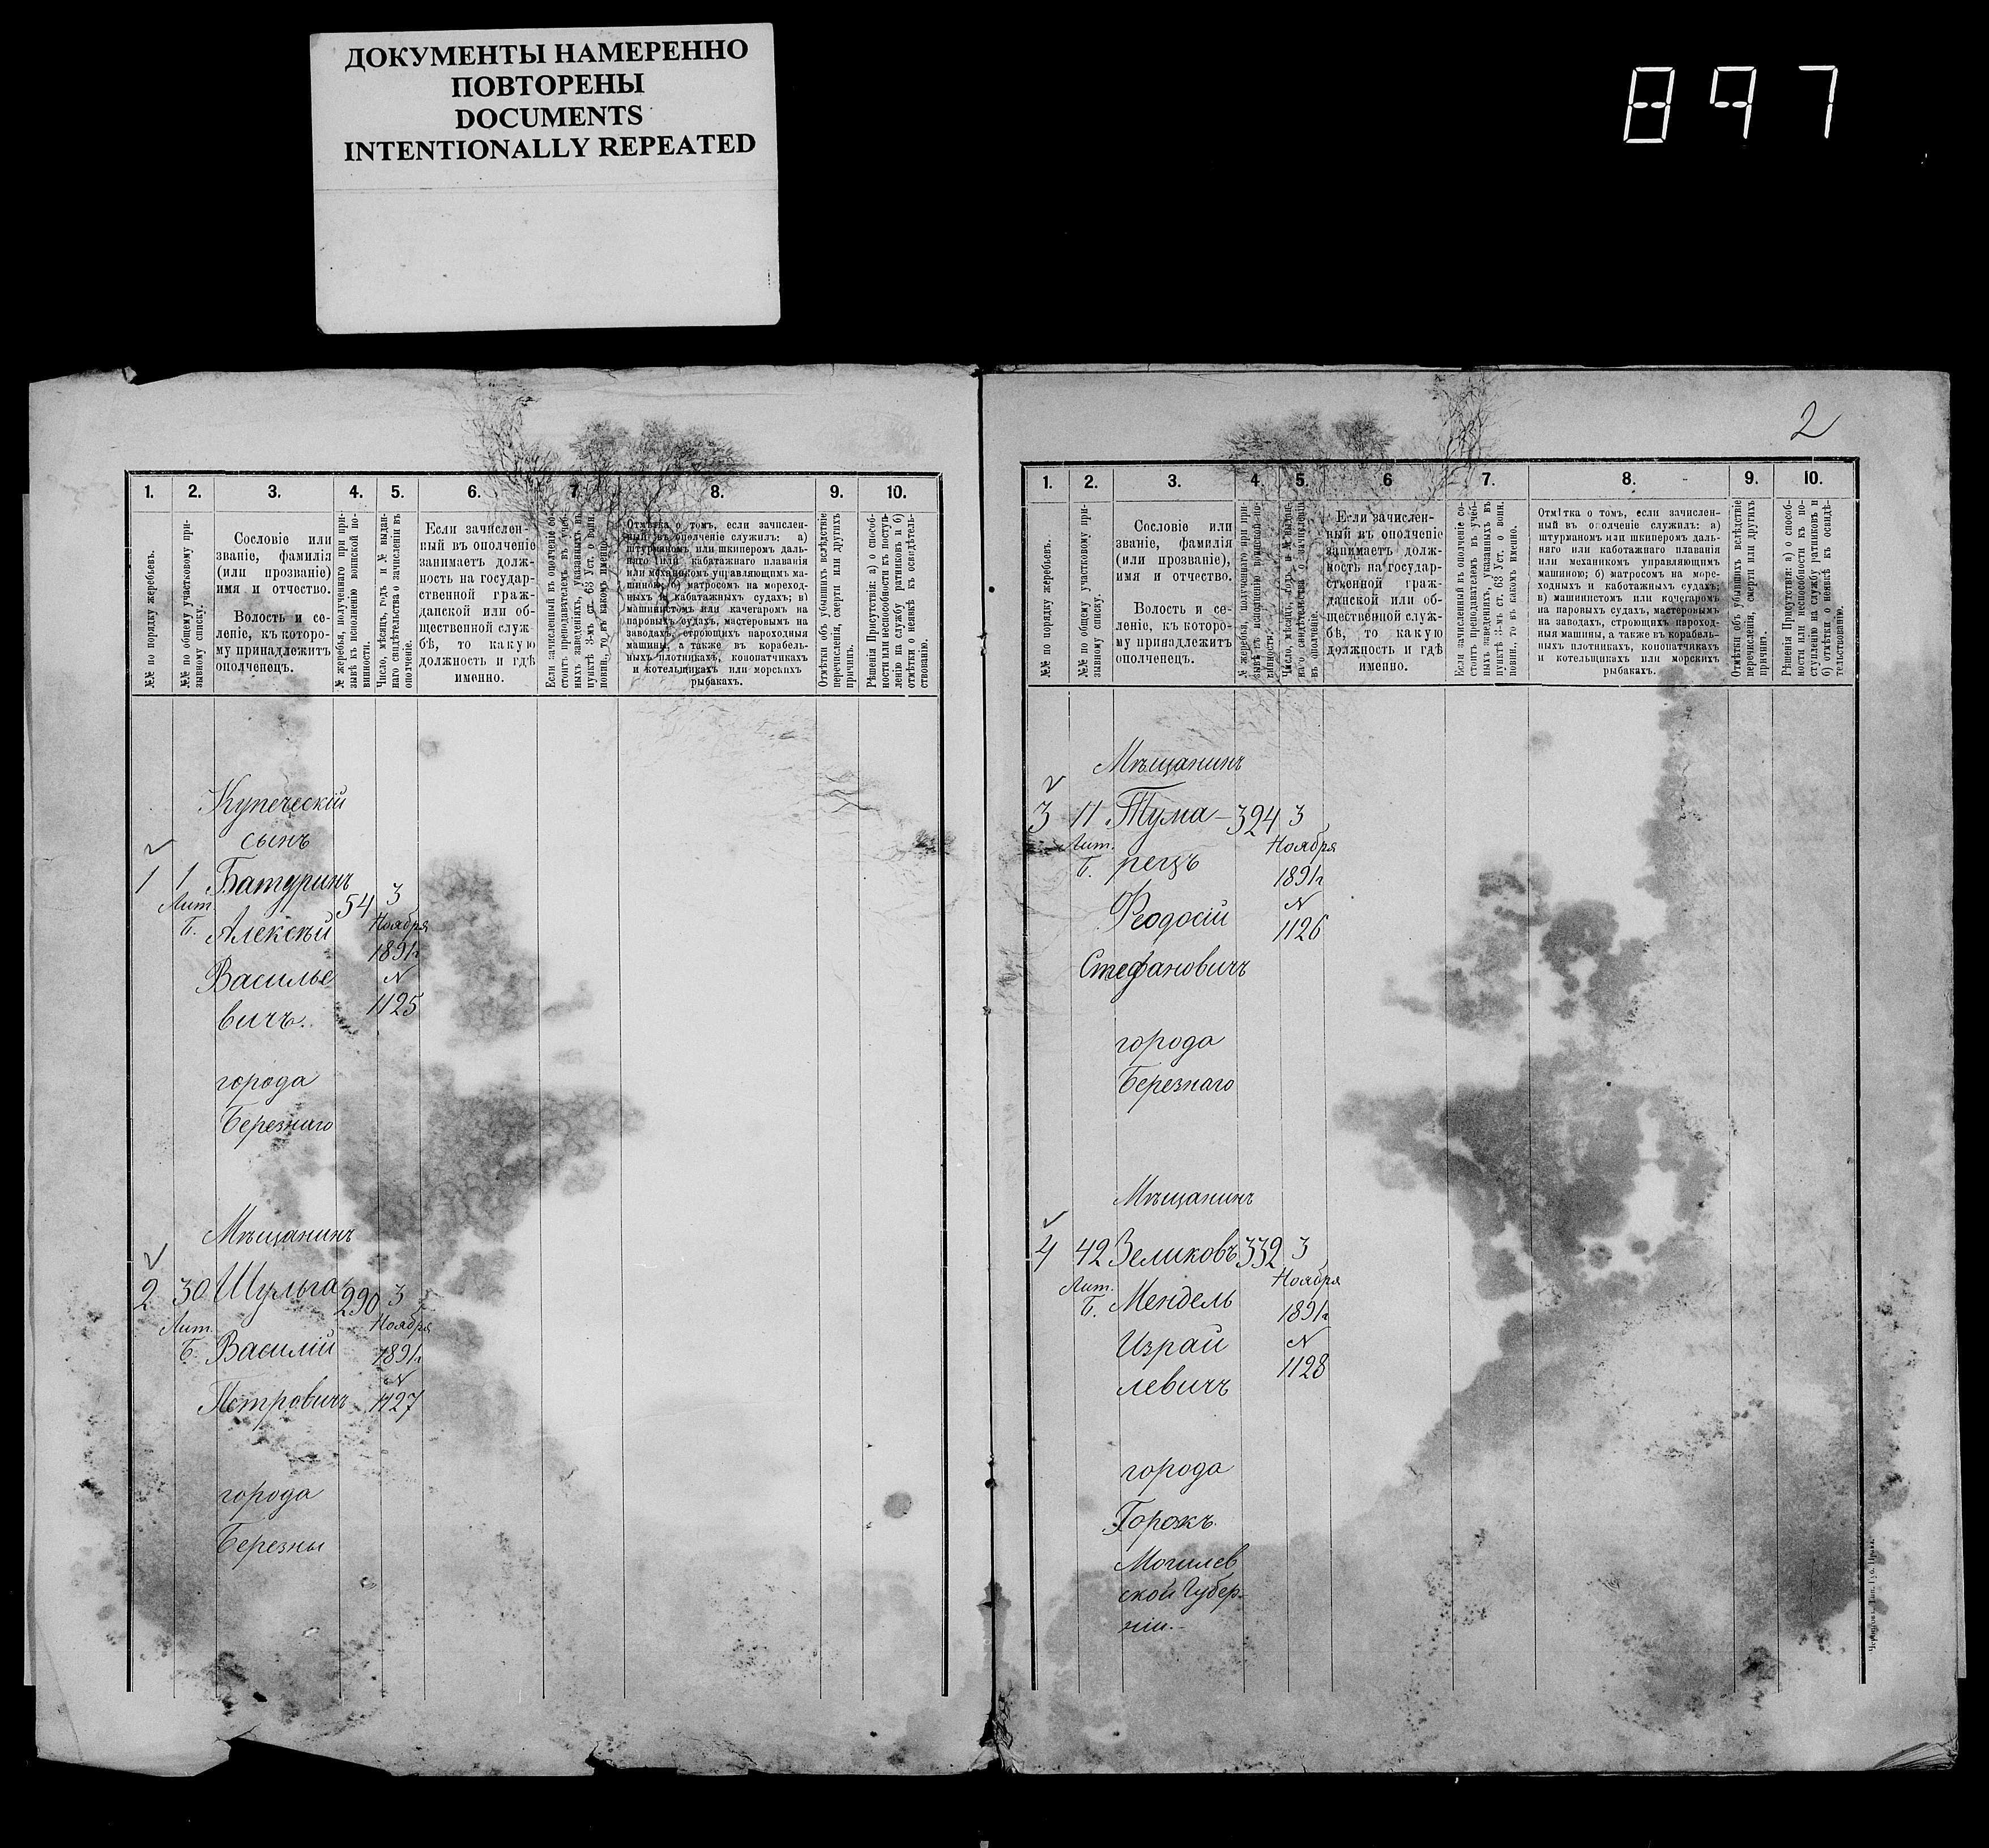 ДОКУМЕНТЫ НАМЕРЕННО
ПОВТОРЕНЫ
DOCUMENTS
INTENTIONALLY REPEATED
897
1.
2.
3.
4.
5.
6.
7.
8.
9.
10.
№№ по порядку жеребьевъ.
№№ по общему участковому при-
зывному списку.
Сословіе или
званіе, фамилія
(или прозваніе)
имя и отчество.
Волость и се-
леніе, къ которо-
му принадлежитъ
ополченецъ.
№ жеребья, полученнаго при при-
зывѣ къ исполненію воинской по-
винности.
Число, мѣсяцъ, годъ и № выдан-
наго свидѣтельства о зачисленіи въ
ополченіе.
Если зачислен-
ный въ ополченіе
занимаетъ долж-
ность на государ-
ственной граж-
данской или об-
щественной служ-
бѣ, то какую
должность и гдѣ
именно.
Если зачисленный въ ополченіе со-
стоитъ преподавателемъ въ учеб-
ныхъ заведеніяхъ, указанныхъ въ
пунктѣ 3-мъ ст. 63 Уст. о воин.
повин., то въ какомъ именно.
Отмѣтка о томъ, если зачислен-
ный въ ополченіе служилъ: а)
штурманомъ или шкиперомъ даль-
няго или кабатажнаго плаванія
или механикомъ управляющимъ ма-
шиной; б) матросомъ на мореход-
ныхъ и кабатажныхъ судахъ; в)
машинистомъ или качегаромъ на
паровыхъ судахъ, мастеровымъ на
заводахъ, строющихъ пароходныя
машины, а также въ корабель-
ныхъ плотникахъ, конопатчикахъ
и котельщикахъ или морскихъ
рыбакахъ.
Отмѣтки объ убывшихъ вслѣдствіе
перечисленія, смерти или другихъ
причинъ.
Рѣшенія Присутствія: а) о способ-
ности или неспособности къ поступ-
ленію на службу ратниковъ и б)
отмѣтки о неявкѣ къ освидѣтель-
ствованію.
Купеческій
сынъ
1 1 Батуринъ
Лит.
Б. Алексѣй
54 3
Ноября
1891г
Василье
N
1125
вичъ.
города
Березнаго
Мѣщанинъ
2 30 Шульга 290 3
Лит.
Ноября
Б. Василій
1891г
N
Петровичъ 1127
города
Березны
2
1.
2.
3.
4.
5.
6
7.
8.
9.
10.
№№ по порядку жеребьевъ.
№№ по общему участковому при-
зывному списку.
Сословіе или
званіе, фамилія
(или прозваніе),
имя и отчество.
Волость и се-
леніе, къ которо-
му принадлежитъ
ополченецъ.
№ жеребья, полученнаго при при-
зывѣ къ исполненію воинской по-
винности.
Число, мѣсяцъ, годъ и № выдан-
наго свидѣтельства о зачисленіи
въ ополченіе.
Если зачислен-
ный въ ополченіе
занимаетъ долж-
ность на государ-
ственной граж-
данской или об-
щественной служ-
бѣ, то какую
должность и гдѣ
именно.
Если зачисленный въ ополченіе со-
стоитъ преподавателемъ въ учеб-
ныхъ заведеніяхъ, указанныхъ въ
пунктѣ 3-мъ ст. 63 Уст. о воин.
повин., то въ какомъ именно.
Отмѣтка о томъ, если зачислен-
ный въ ополченіе служилъ: а)
штурманомъ или шкиперомъ даль-
няго или каботажнаго плаванія
или механикомъ управляющимъ
машиною; б) матросомъ на море-
ходныхъ и каботажныхъ судахъ;
в) машинистомъ или кочегаромъ
на паровыхъ судахъ, мастеровымъ
на заводахъ, строющихъ пароход-
ныя машины, а также въ корабель-
ныхъ плотникахъ, конопатчикахъ
и котельщикахъ или морскихъ
рыбакахъ.
Отмѣтки объ убывшихъ вслѣдствіе
перечисленія, смерти или другихъ
причинъ.
Рѣшенія Присутствія: а) о способ-
ности или неспособности къ по-
ступленію на службу ратниковъ и
б) отмѣтки о неявкѣ къ освидѣ-
тельствованію.
Мѣщанинъ
3 11 Тума- 324 3
Лит.
Ноября
Б. рецъ
1891г
N
Феодосій
1126
Стефановичъ
города
Березнаго
Мѣщанинъ
4 42 Зеликовъ 332 3
Лит.
Ноября
Б. Мендель
1891г
Израй
N
1128
левичъ
города
Горокъ.
Могилев
ской Губер-
ніи.-
Черниговъ. Тип. Губ. Правл.